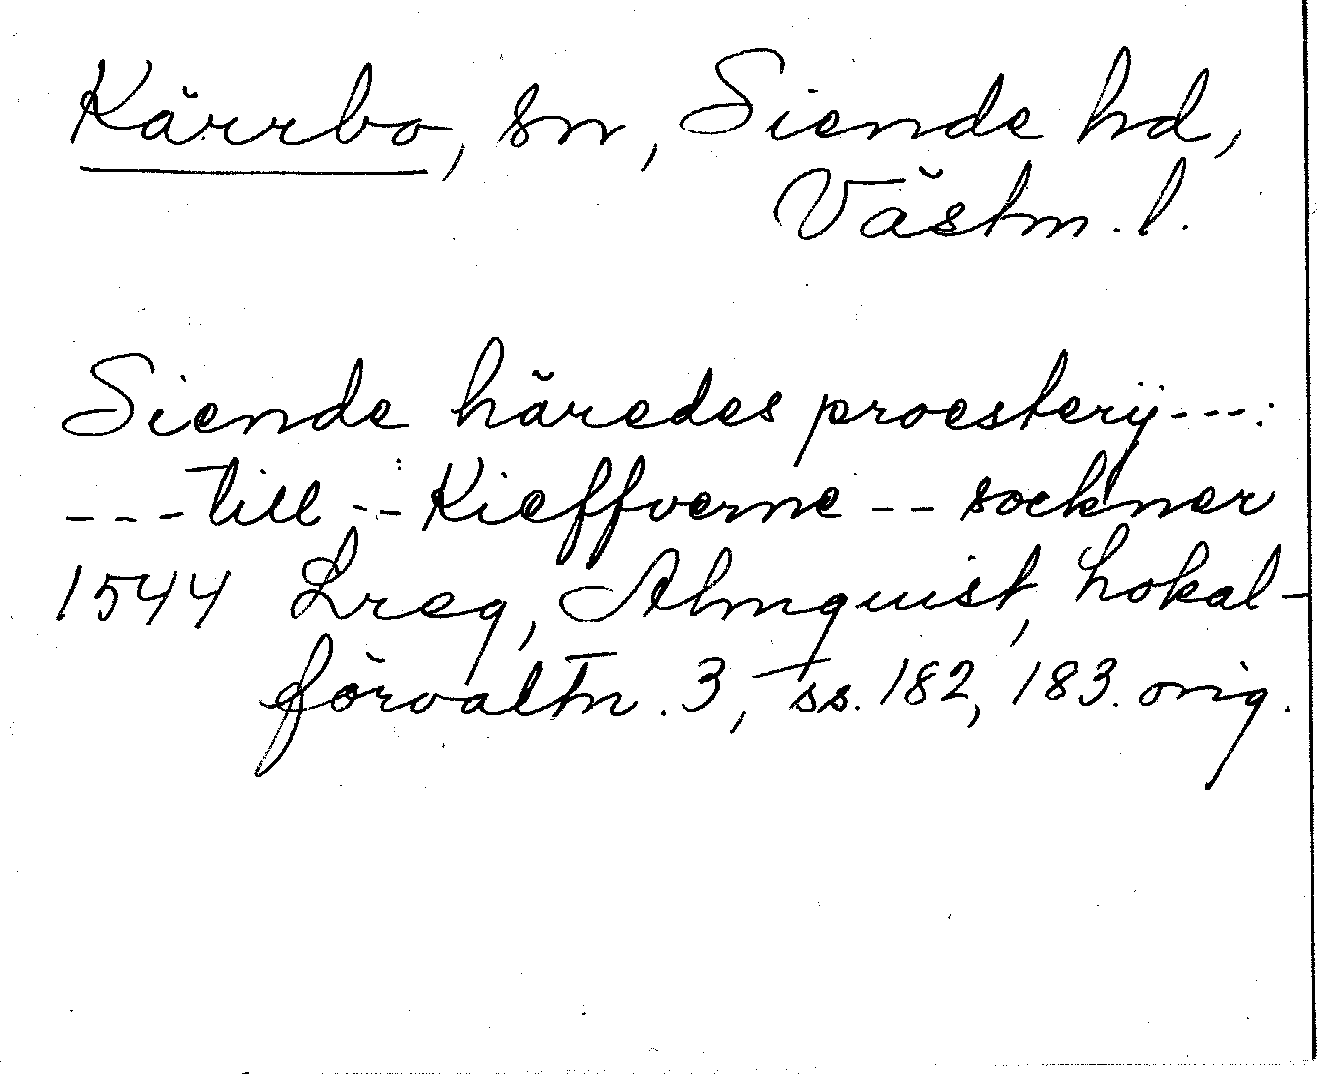 Kärrbo, sn, Siende hd,
Västm. l.
Siende häredes proesterij---:
---till --Kieffverne -- sockner
1544 Lreg, Almquist, Lokal-
förvaltn. 3, ss. 182, 183. orig.